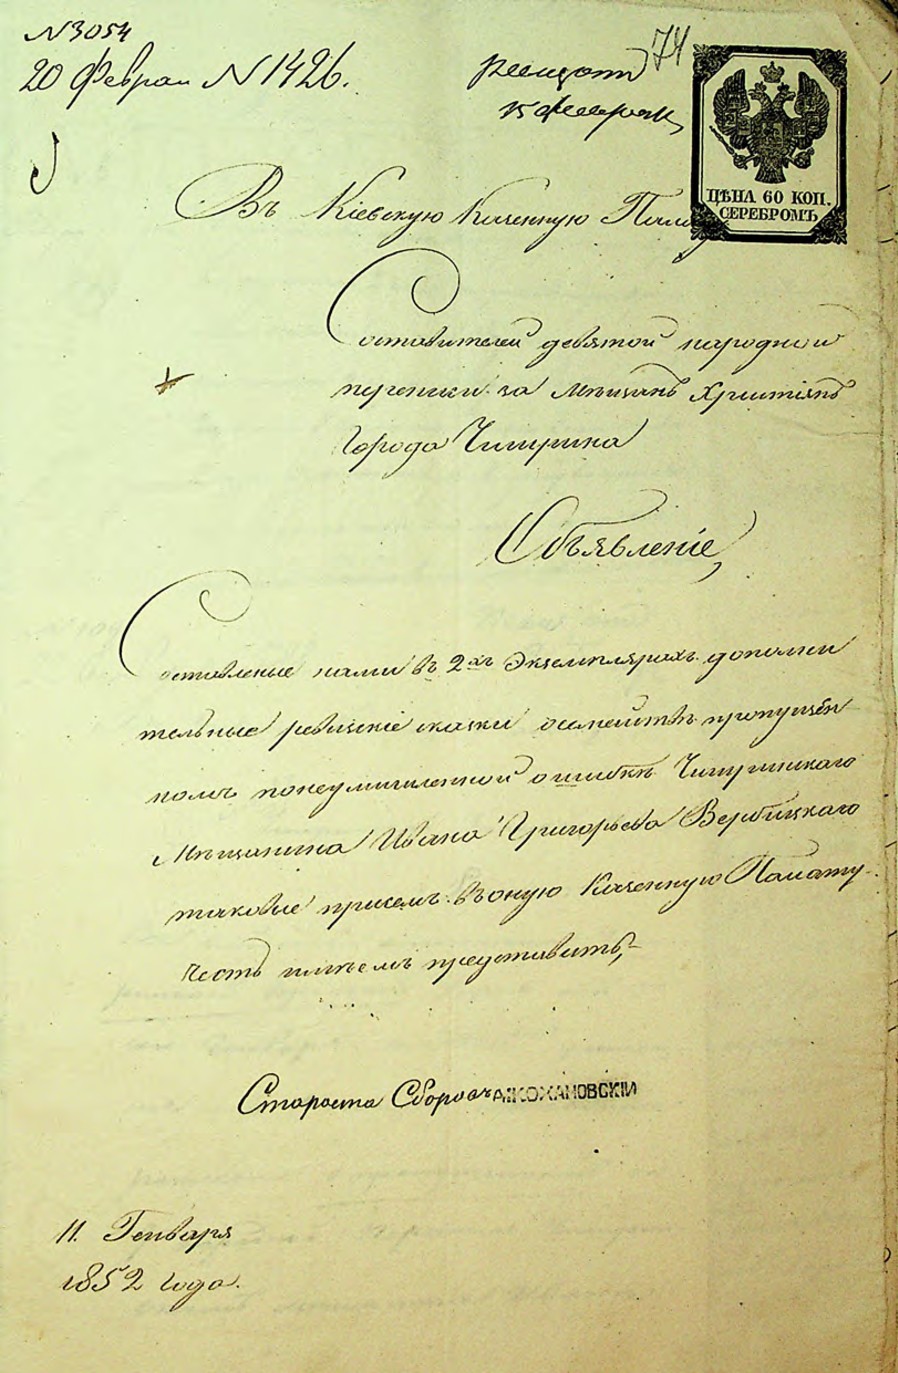 №3054
20 Февраля №1426.
74
Февраля
ЦѢНА 60 КОП.
СЕРЕБРОМЪ
Въ Кіевскую Казенную Палату
Составителей девятой народной
переписи за Мѣщанъ Христіянъ
Города Чигирина
Объявленіе,
Составленые нами въ 2хъ Экземплярахъ дополни
тельные ревизскіе сказки осемействѣ пропущен
номъ понеумышленной ошибкѣ Чигиринскаго
Мѣщанина Ивана Григорьева Вербицкаго
таковые присемъ въоную Казенную Палату
честь имѣемъ представить,
Староста Сборовъ КОХАНОВСКІЙ
11. Генваря
1852 года.